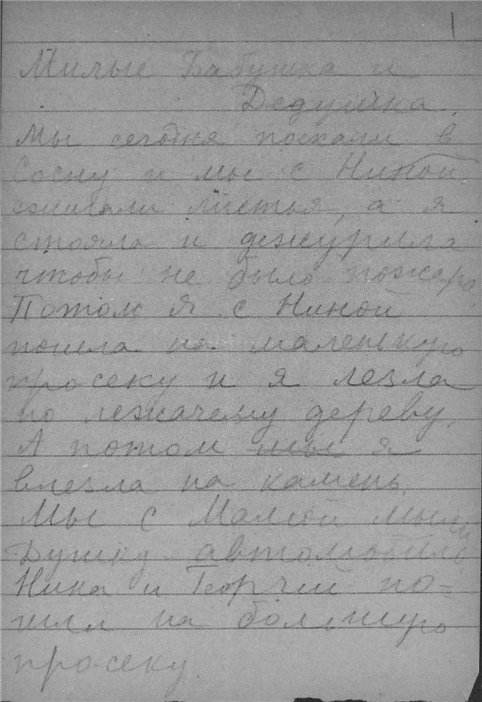 1
Милые Бабушка и
Дедушка.
Мы сегодня поехали в
Сосну и мы с Ниной
сжигали листья, а я
стояла и дежурила
чтобы не было пожара.
Потом я с Ниной
пошла на маленькую
просеку и я лезла
по лежачему дереву.
А потом мы я
влезла на камень.
Мы с Мамой мыли
Душку автомобиль
Нина и Георгий по-
шли на большую
просеку.